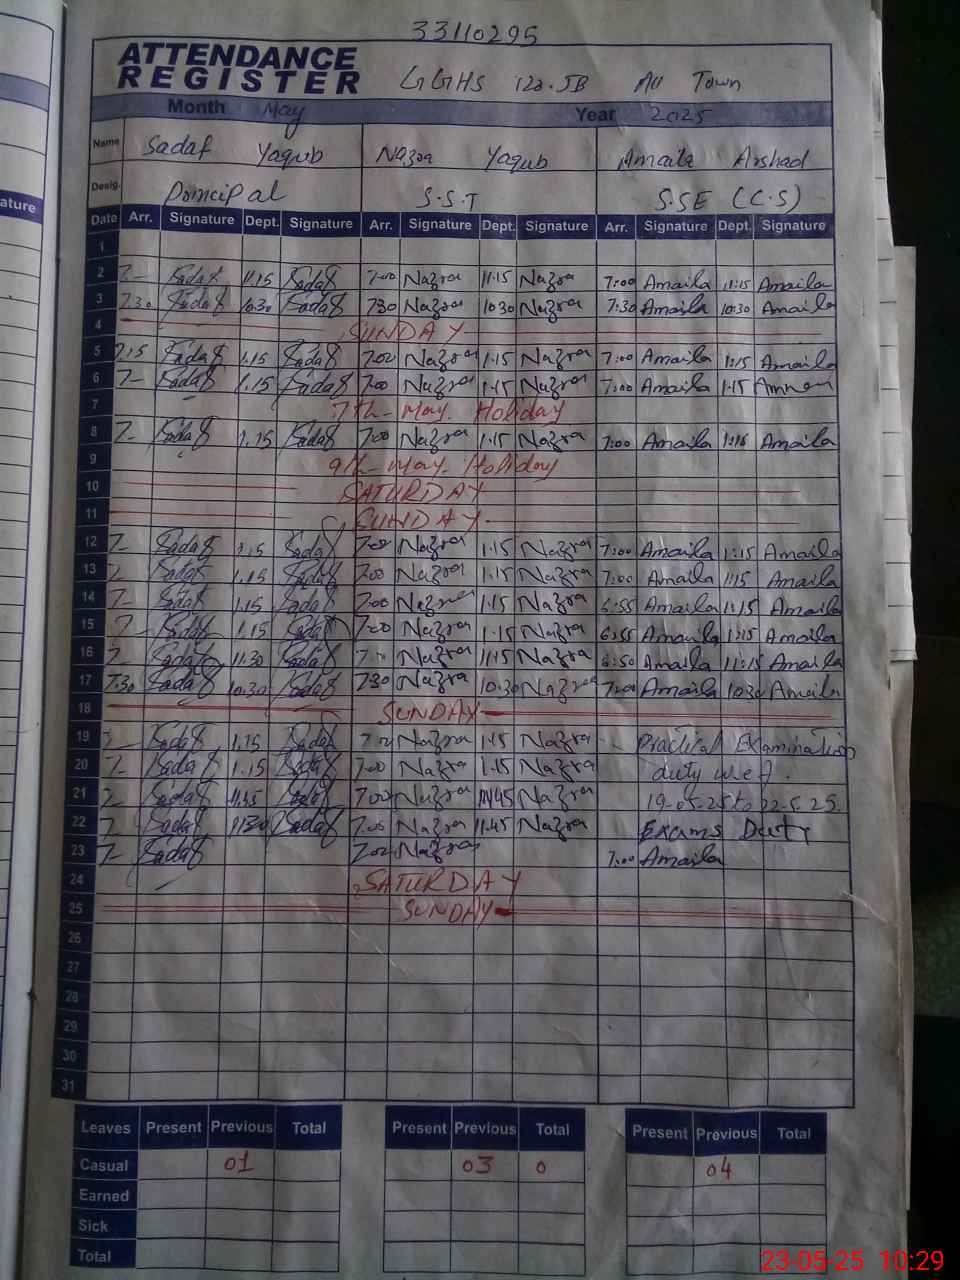 33110295
ATTENDANCE
REGISTER
GGHS 122.JB Ali Town
Month May Year 2025
Name Sadaf Yaqub Nazra Yaqub Amaila Arshad
Desig. Principal S.S.T S.SE (C.S)
Date Arr. Signature Dept. Signature Arr. Signature Dept. Signature Arr. Signature Dept. Signature
1
2 7- Sadaf 11.15 Sadaf 7:00 Nazra 11.15 Nazra 7:00 Amaila 11:15 Amaila
3 7.30 Sadaf 10.30 Sadaf 730 Nazra 10.30 Nazra 7:30 Amaila 10:30 Amaila
4 SUNDAY
5 7.15 Sadaf 1.15 Sadaf 7.00 Nazra 1.15 Nazra 7:00 Amaila 1:15 Amaila
6 7- Sadaf 1.15 Sadaf 700 Nazra 1.15 Nazra 7:00 Amaila 1:15
7 7th-May. Holiday
8 7- Sadaf 1.15 Sadaf 7:00 Nazra 1.15 Nazra 7:00 Amaila 1:15 Amaila
9 9th-May. Holiday
10 SATURDAY
11 SUNDAY
12 7- Sadaf 1.15 Sadaf 7:00 Nazra 1.15 Nazra 7:00 Amaila 1:15 Amaila
13 7- Sadaf 1.15 Sadaf 7:00 Nazra 1.15 Nazra 7:00 Amaila 1:15 Amaila
14 7- Sadaf 1.15 Sadaf 7:00 Nazra 1.15 Nazra 6:55 Amaila 1:15 Amaila
15 7- Sadaf 1.15 Sadaf 7:00 Nazra 1.15 Nazra 6:55 Amaila 1:15 Amaila
16 7- Sadaf 11.30 Sadaf 7:00 Nazra 11.15 Nazra 6:50 Amaila 11:15 Amaila
17 7.30 Sadaf 10.30 Sadaf 730 Nazra 10.30 Nazra 7:00 Amaila 10:30 Amaila
18 SUNDAY
19 7- Sadaf 1.15 Sadaf 7:00 Nazra 1.15 Nazra Practical Examination
20 7- Sadaf 1.15 Sadaf 7:00 Nazra 1.15 Nazra duty w.e.f.
21 7- Sadaf 11.45 Sadaf 7:00 Nazra 11.45 Nazra 19-05-25 to 22-5-25.
22 7- Sadaf 11.30 Sadaf 7:00 Nazra 11.45 Nazra Exams Duty
23 7- Sadaf 7:00 Nazra 7:00 Amaila
24 SATURDAY
25 SUNDAY
26
27
28
29
30
31
Leaves Present Previous Total Present Previous Total Present Previous Total
Casual 01 03 0 04
Earned
Sick
Total
23-05-25 10:29